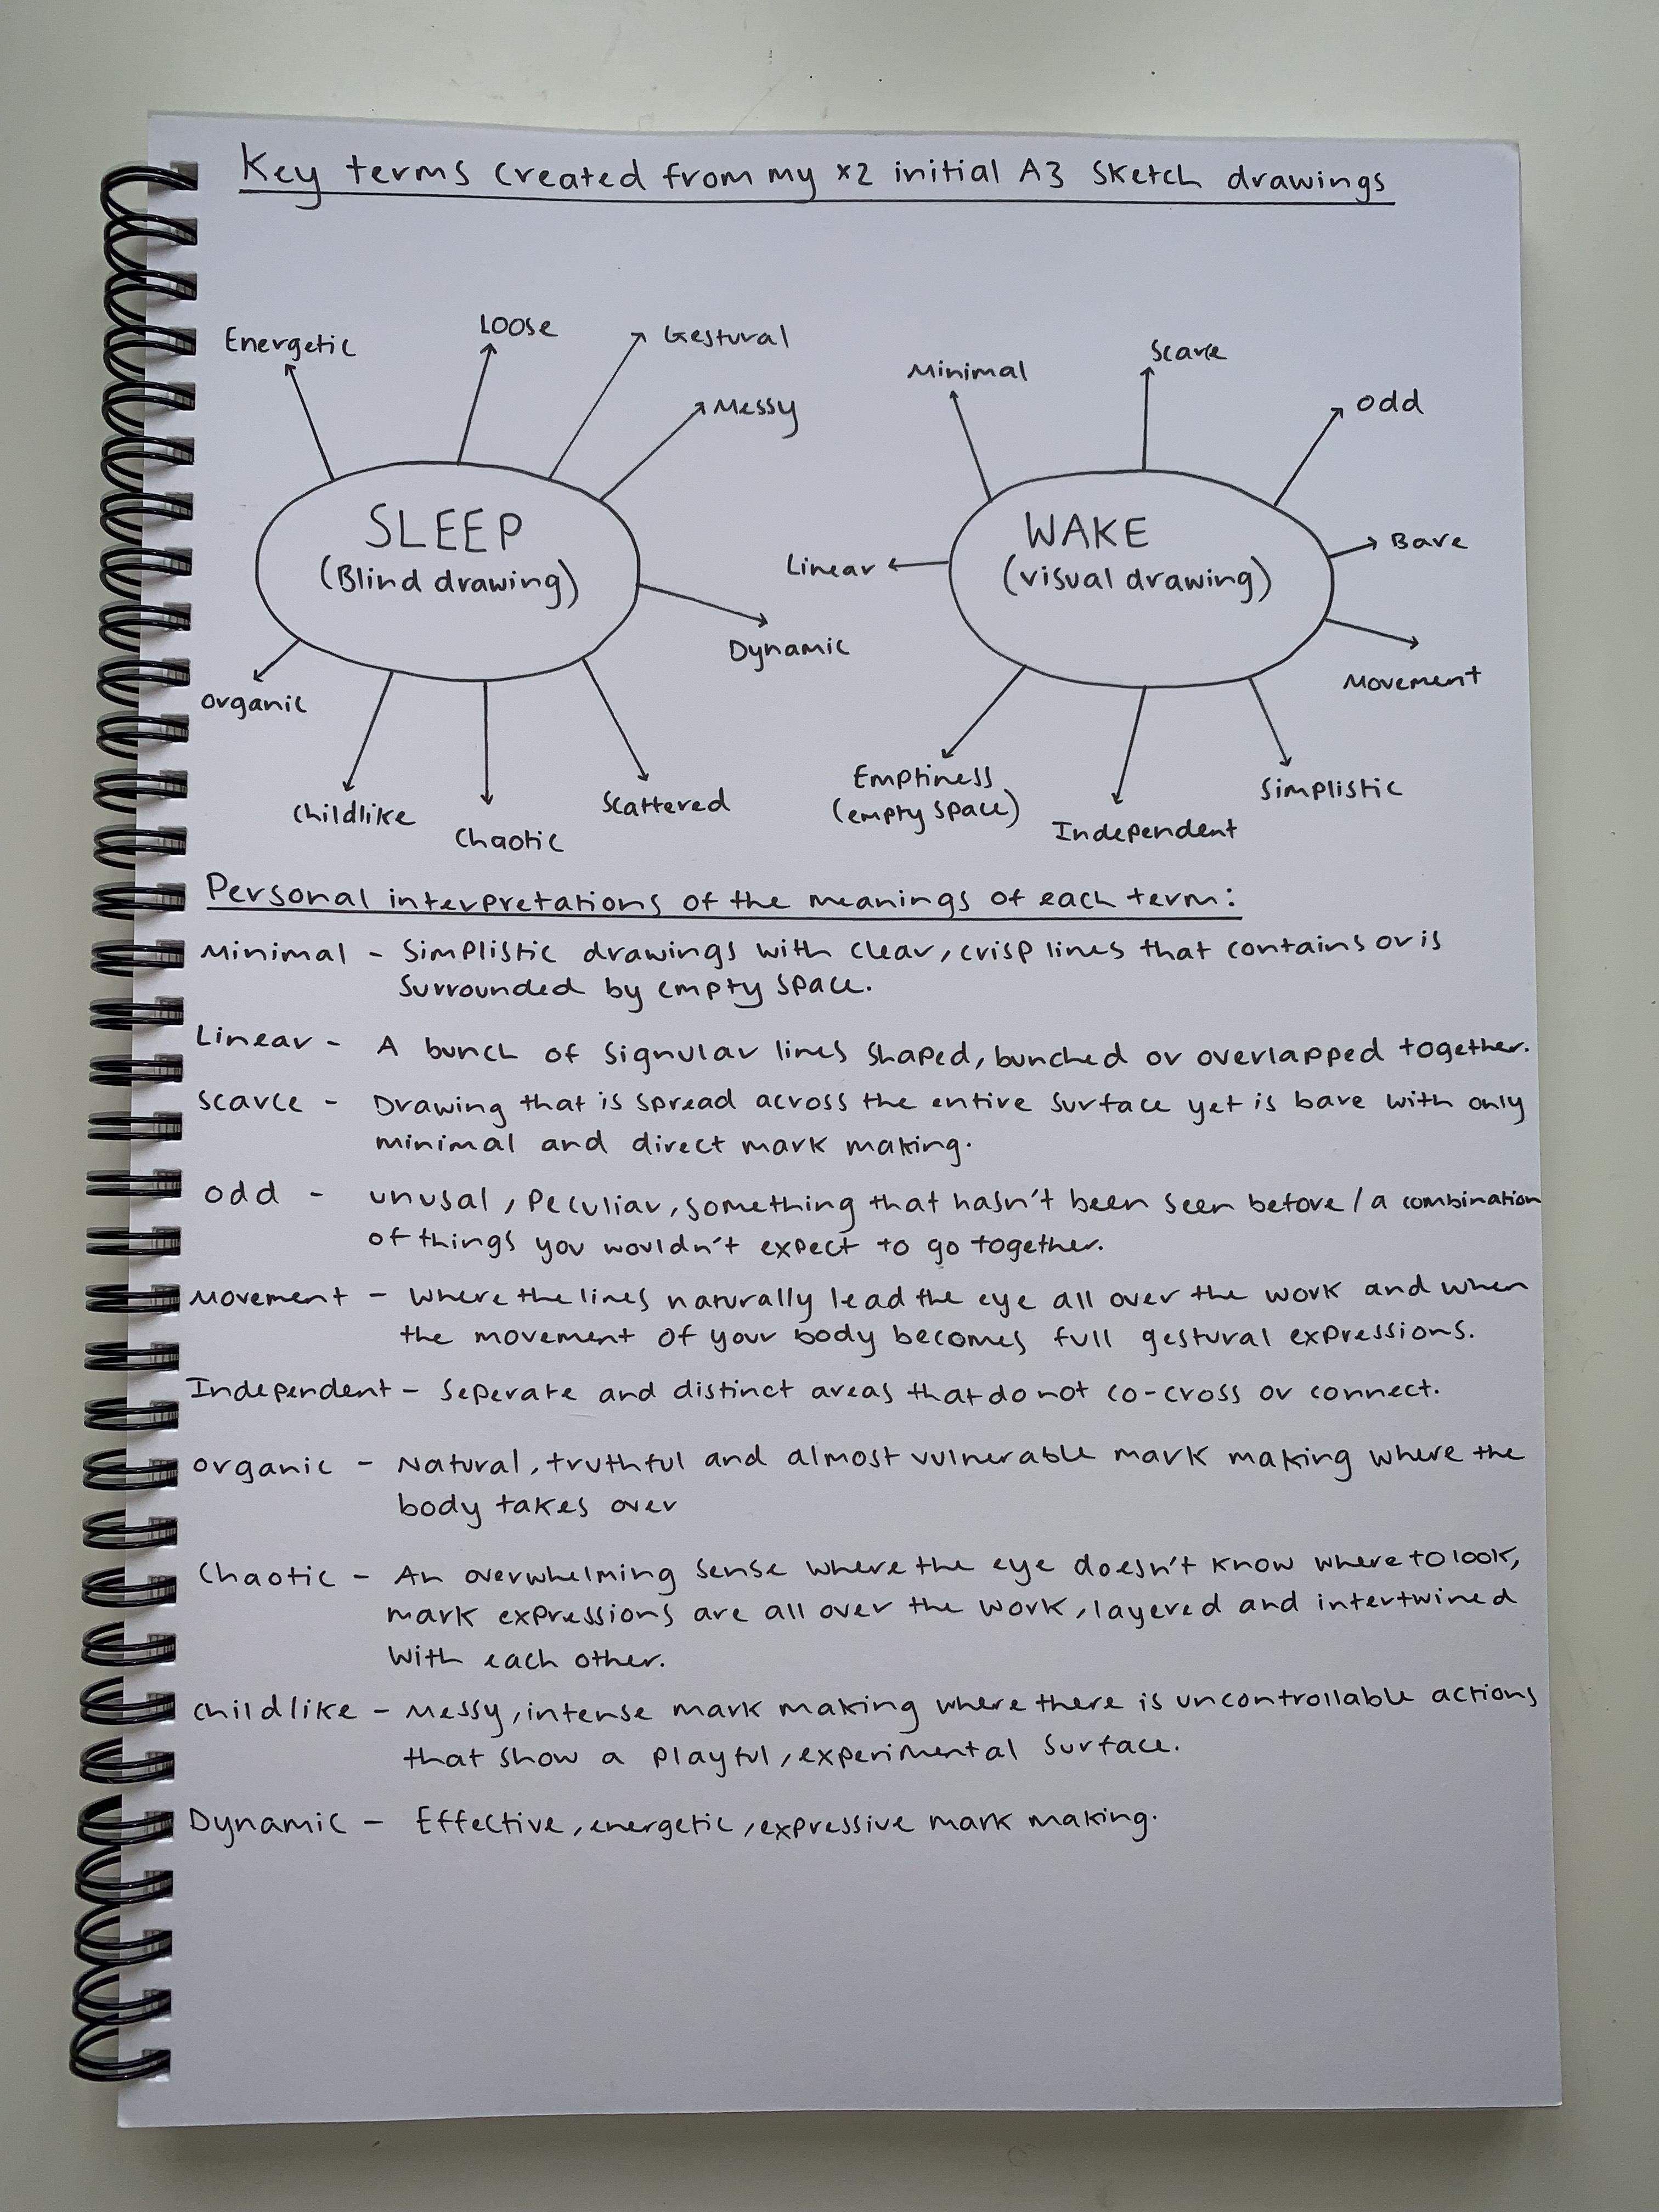 Key terms created from my x2 initial A3 sketch drawings
Energetic
Loose
Gestural
Messy
SLEEP
(Blind drawing)
Dynamic
Organic
Childlike
Chaotic
Scattered
Minimal
Scarce
Odd
Linear
WAKE
(visual drawing)
Bare
Movement
Emptiness
(empty space)
Independent
Simplistic
Personal interpretations of the meanings of each term:
Minimal - Simplistic drawings with clear, crisp lines that contains or is
surrounded by empty space.
Linear - A bunch of signular lines shaped, bunched or overlapped together.
Scarce - Drawing that is spread across the entire surface yet is bare with only
minimal and direct mark making.
Odd - unusal, peculiar, something that hasn't been seen before / a combination
of things you wouldn't expect to go together.
Movement - Where the lines naturally lead the eye all over the work and when
the movement of your body becomes full gestural expressions.
Independent - Seperate and distinct areas that do not co-cross or connect.
Organic - Natural, truthful and almost vulnerable mark making where the
body takes over
Chaotic - An overwhelming sense where the eye doesn't know where to look,
mark expressions are all over the work, layered and intertwined
with each other.
Childlike - Messy, intense mark making where there is uncontrollable actions
that show a playful, experimental surface.
Dynamic - Effective, energetic, expressive mark making.